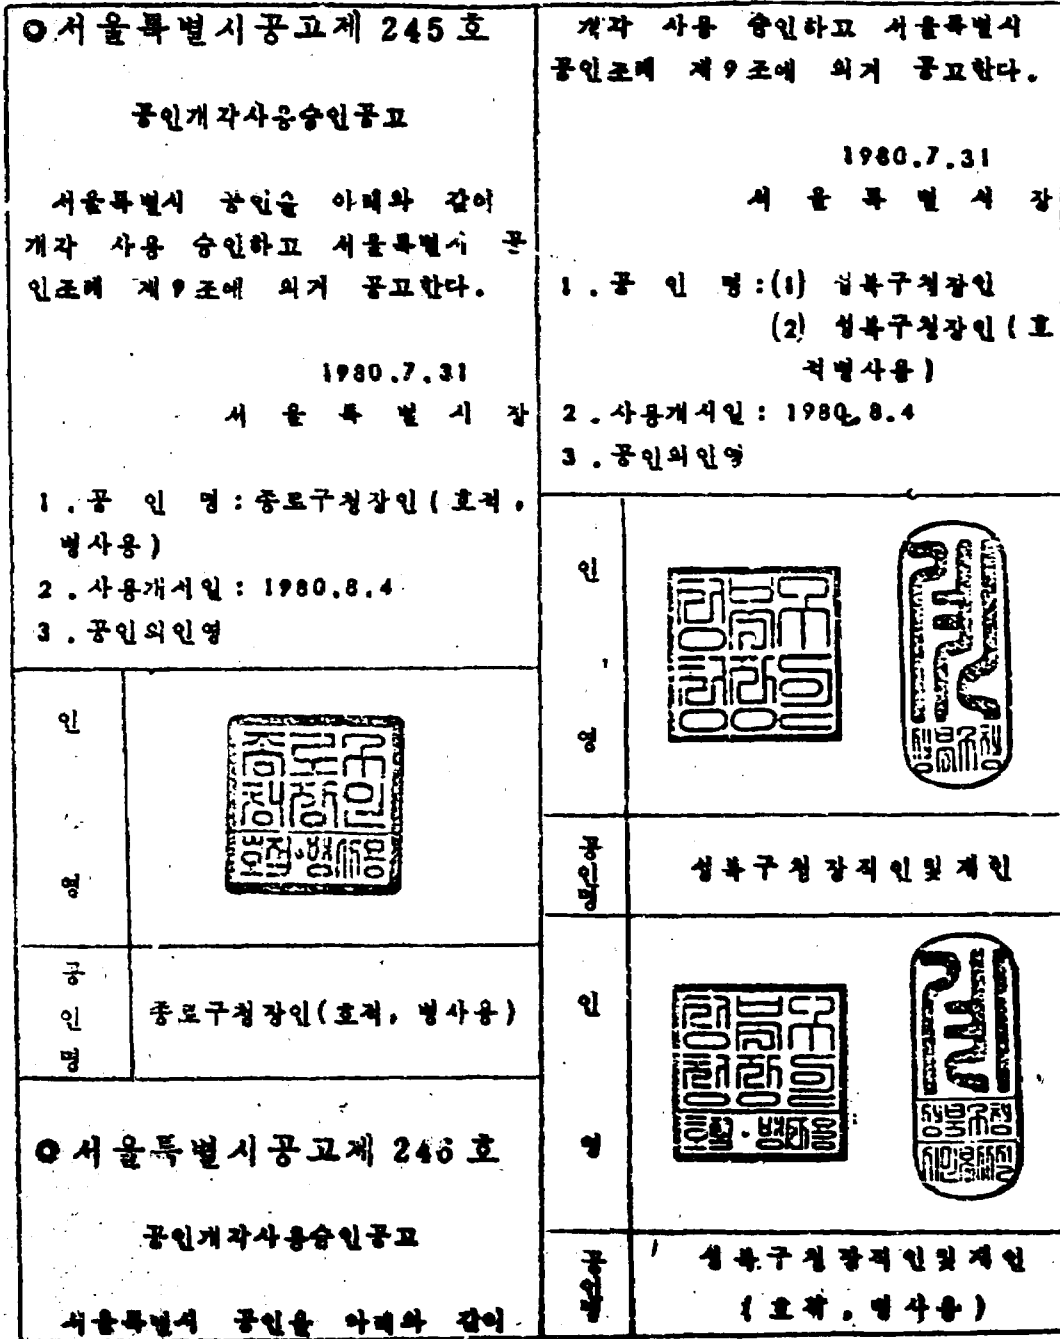 ○서울특별시공고제 245호
공인개각사용승인공고
서울특별시 공인을 아래와 같이
개각 사용 승인하고 서울특별시 공
인조례 제9조에 의거 공고한다.
1980.7.31
서 울 특 별 시 장
1.공 인 명:종로구청장인(호적,
병사용)
2.사용개시일: 1980.8.4
3.공인의인영
인
영
공
인
명
종로구청장인(호적, 병사용)
○서울특별시공고제 246호
공인개각사용승인공고
서울특별시 공인을 아래와 같이
개각 사용 승인하고 서울특별시
공인조례 제9조에 의거 공고한다.
1980.7.31
서 울 특 별 시 장
1.공 인 명:(1) 성북구청장인
(2) 성북구청장인(호
적병사용)
2.사용개시일: 1980.8.4
3.공인의인영
인
영
공인명
성북구청장직인및계인
인
영
공인명
성북구청장직인및계인
(호적, 병사용)